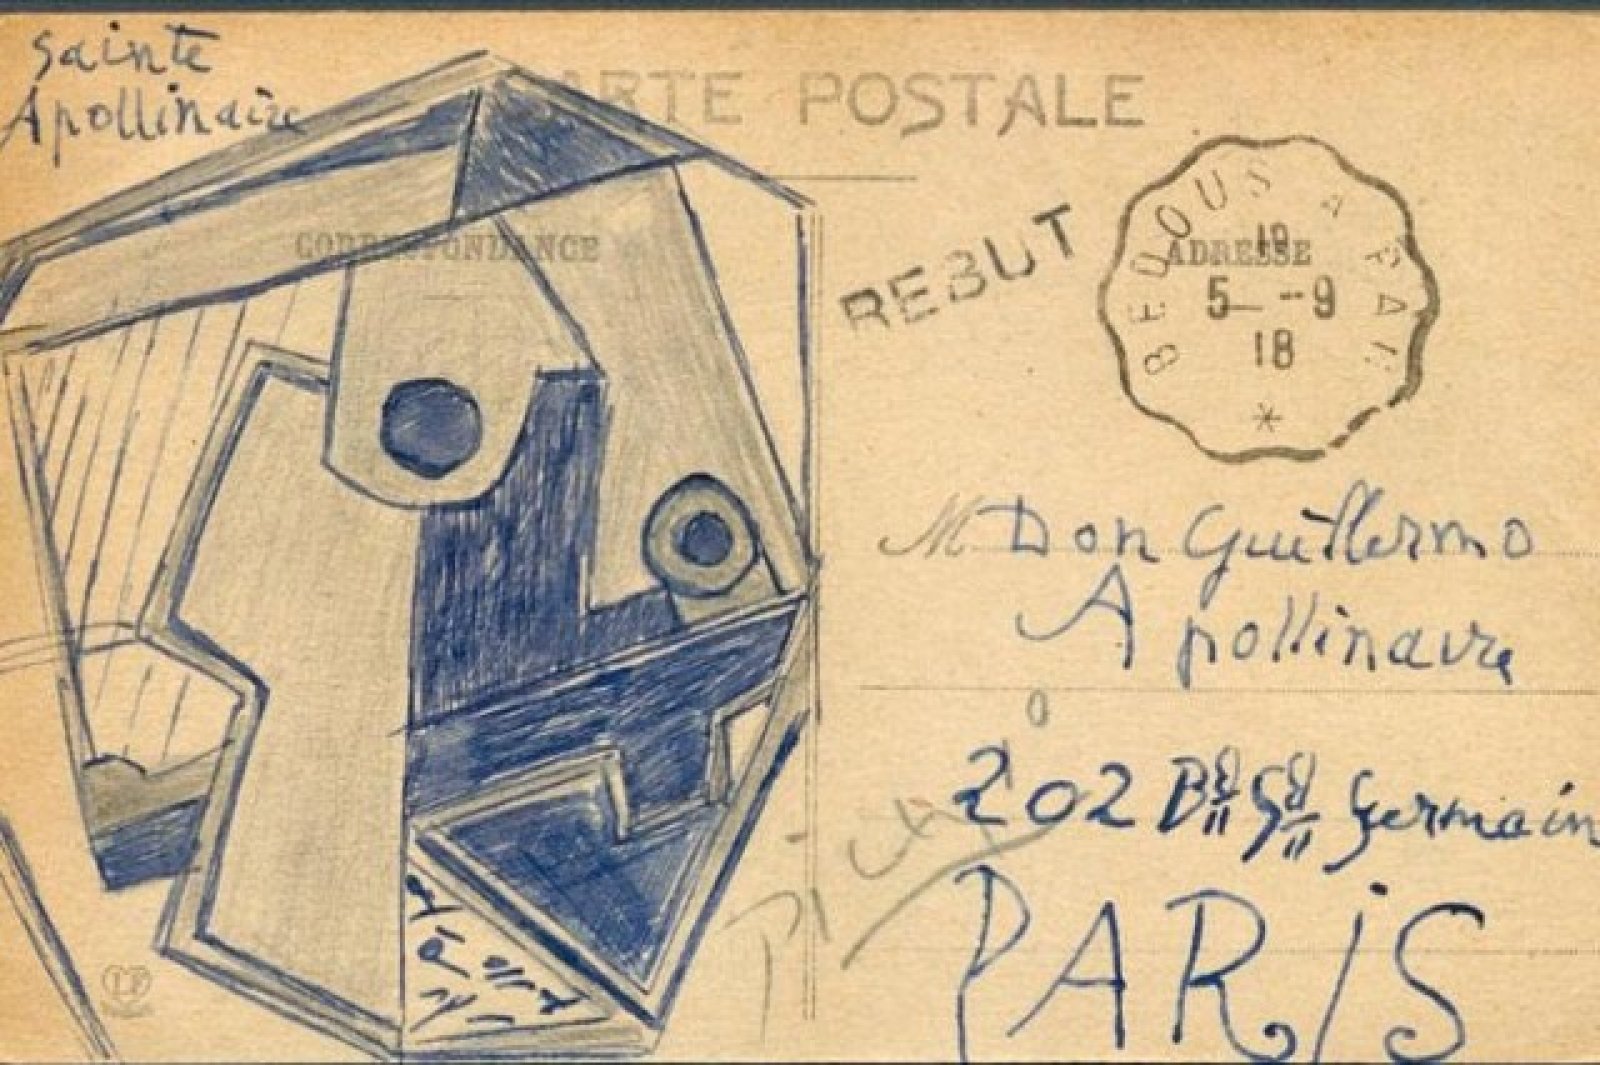 Sainte
Apollinaire
CARTE POSTALE
CORRESPONDANCE
REBUT
BEDOUS A PAU
ADRESSE
19
5 - -9
18
*
M Don Guillermo
Apollinaire
202 Bd St Germain
PARIS